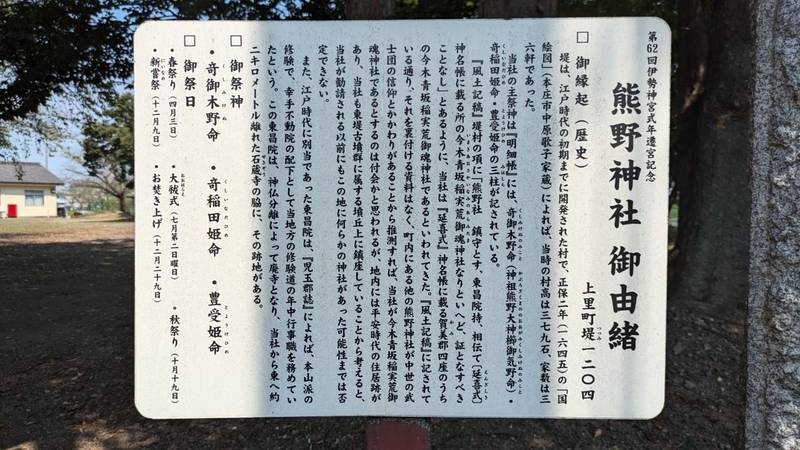 第62回伊勢神宮式年遷宮記念
熊野神社 御由緒
上里町堤一二〇四
□ 御縁起（歴史）
堤は、江戸時代の初期までに開発された村で、正保二年（一六四五）の「国
絵図」（本庄市中原歌子家蔵）によれば、当時の村高は三七九石、家数は三
六軒であった。
当社の主祭神は『明細帳』には、奇御木野命（神祖熊野大神櫛御気野命）・
奇稲田姫命・豊受姫命の三柱が記されている。
『風土記稿』堤村の項に「熊野社 鎮守とす、東昌院持、相伝て〔延喜式〕
神名帳に載る所の今木青坂稲実荒御魂神社なりといへど、証となすべき
ことなし」とあるように、当社は『延喜式』神名帳に載る賀美郡四座のうち
の今木青坂稲実荒御魂神社であるといわれてきた。『風土記稿』に記されて
いる通り、それを裏付ける資料はなく、町内にある他の熊野神社が中世の武
士団の信仰とかかわりがあることから推測すれば、当社が今木青坂稲実荒御
魂神社であるとするのは付会かと思われるが、地内には平安時代の住居跡が
あり、当社も東堤古墳群に属する墳丘上に鎮座していることから考えると、
当社が勧請される以前にもこの地に何らかの神社があった可能性までは否
定できない。
また、江戸時代に別当であった東昌院は、『児玉郡誌』によれば、本山派の
修験で、幸手不動院の配下として当地方の修験道の年中行事職を務めてい
たという。この東昌院は、神仏分離によって廃寺となり、当社から東へ約
二キロメートル離れた石蔵寺の脇に、その跡地がある。
□ 御祭神
・奇御木野命 ・奇稲田姫命 ・豊受姫命
□ 御祭日
・春祭り（四月三日） ・大祓式（七月第二日曜日） ・秋祭り（十月十九日）
・新嘗祭（十二月九日） ・お焚き上げ（十二月二十九日）